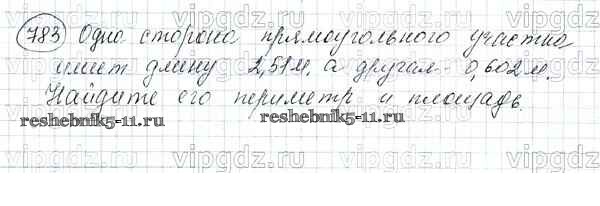 783 Одна сторона прямоугольного участка
имеет длину 2,51м, а другая - 0,602 м.
Найдите его периметр и площадь.
reshebnik5-11.ru
reshebnik5-11.ru
vipgdz.ru vipgdz.ru vipgdz.ru vipgdz.ru
vipgdz.ru vipgdz.ru vipgdz.ru vipgdz.ru
vipgdz.ru vipgdz.ru vipgdz.ru vipgdz.ru
vipgdz.ru vipgdz.ru vipgdz.ru vipgdz.ru